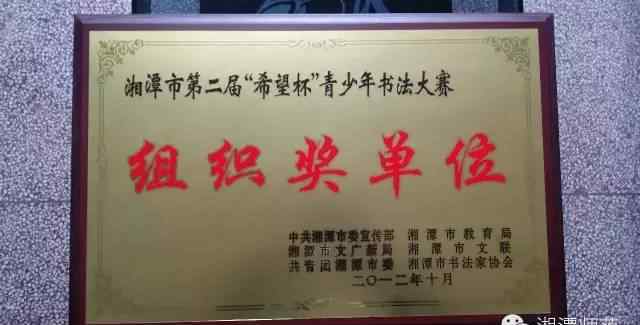 湘潭市第二届“希望杯”青少年书法大赛
组织奖单位
中共湘潭市委宣传部 湘潭市教育局
湘潭市文广新局 湘潭市文联
共青团湘潭市委 湘潭市书法家协会
二〇一二年十月